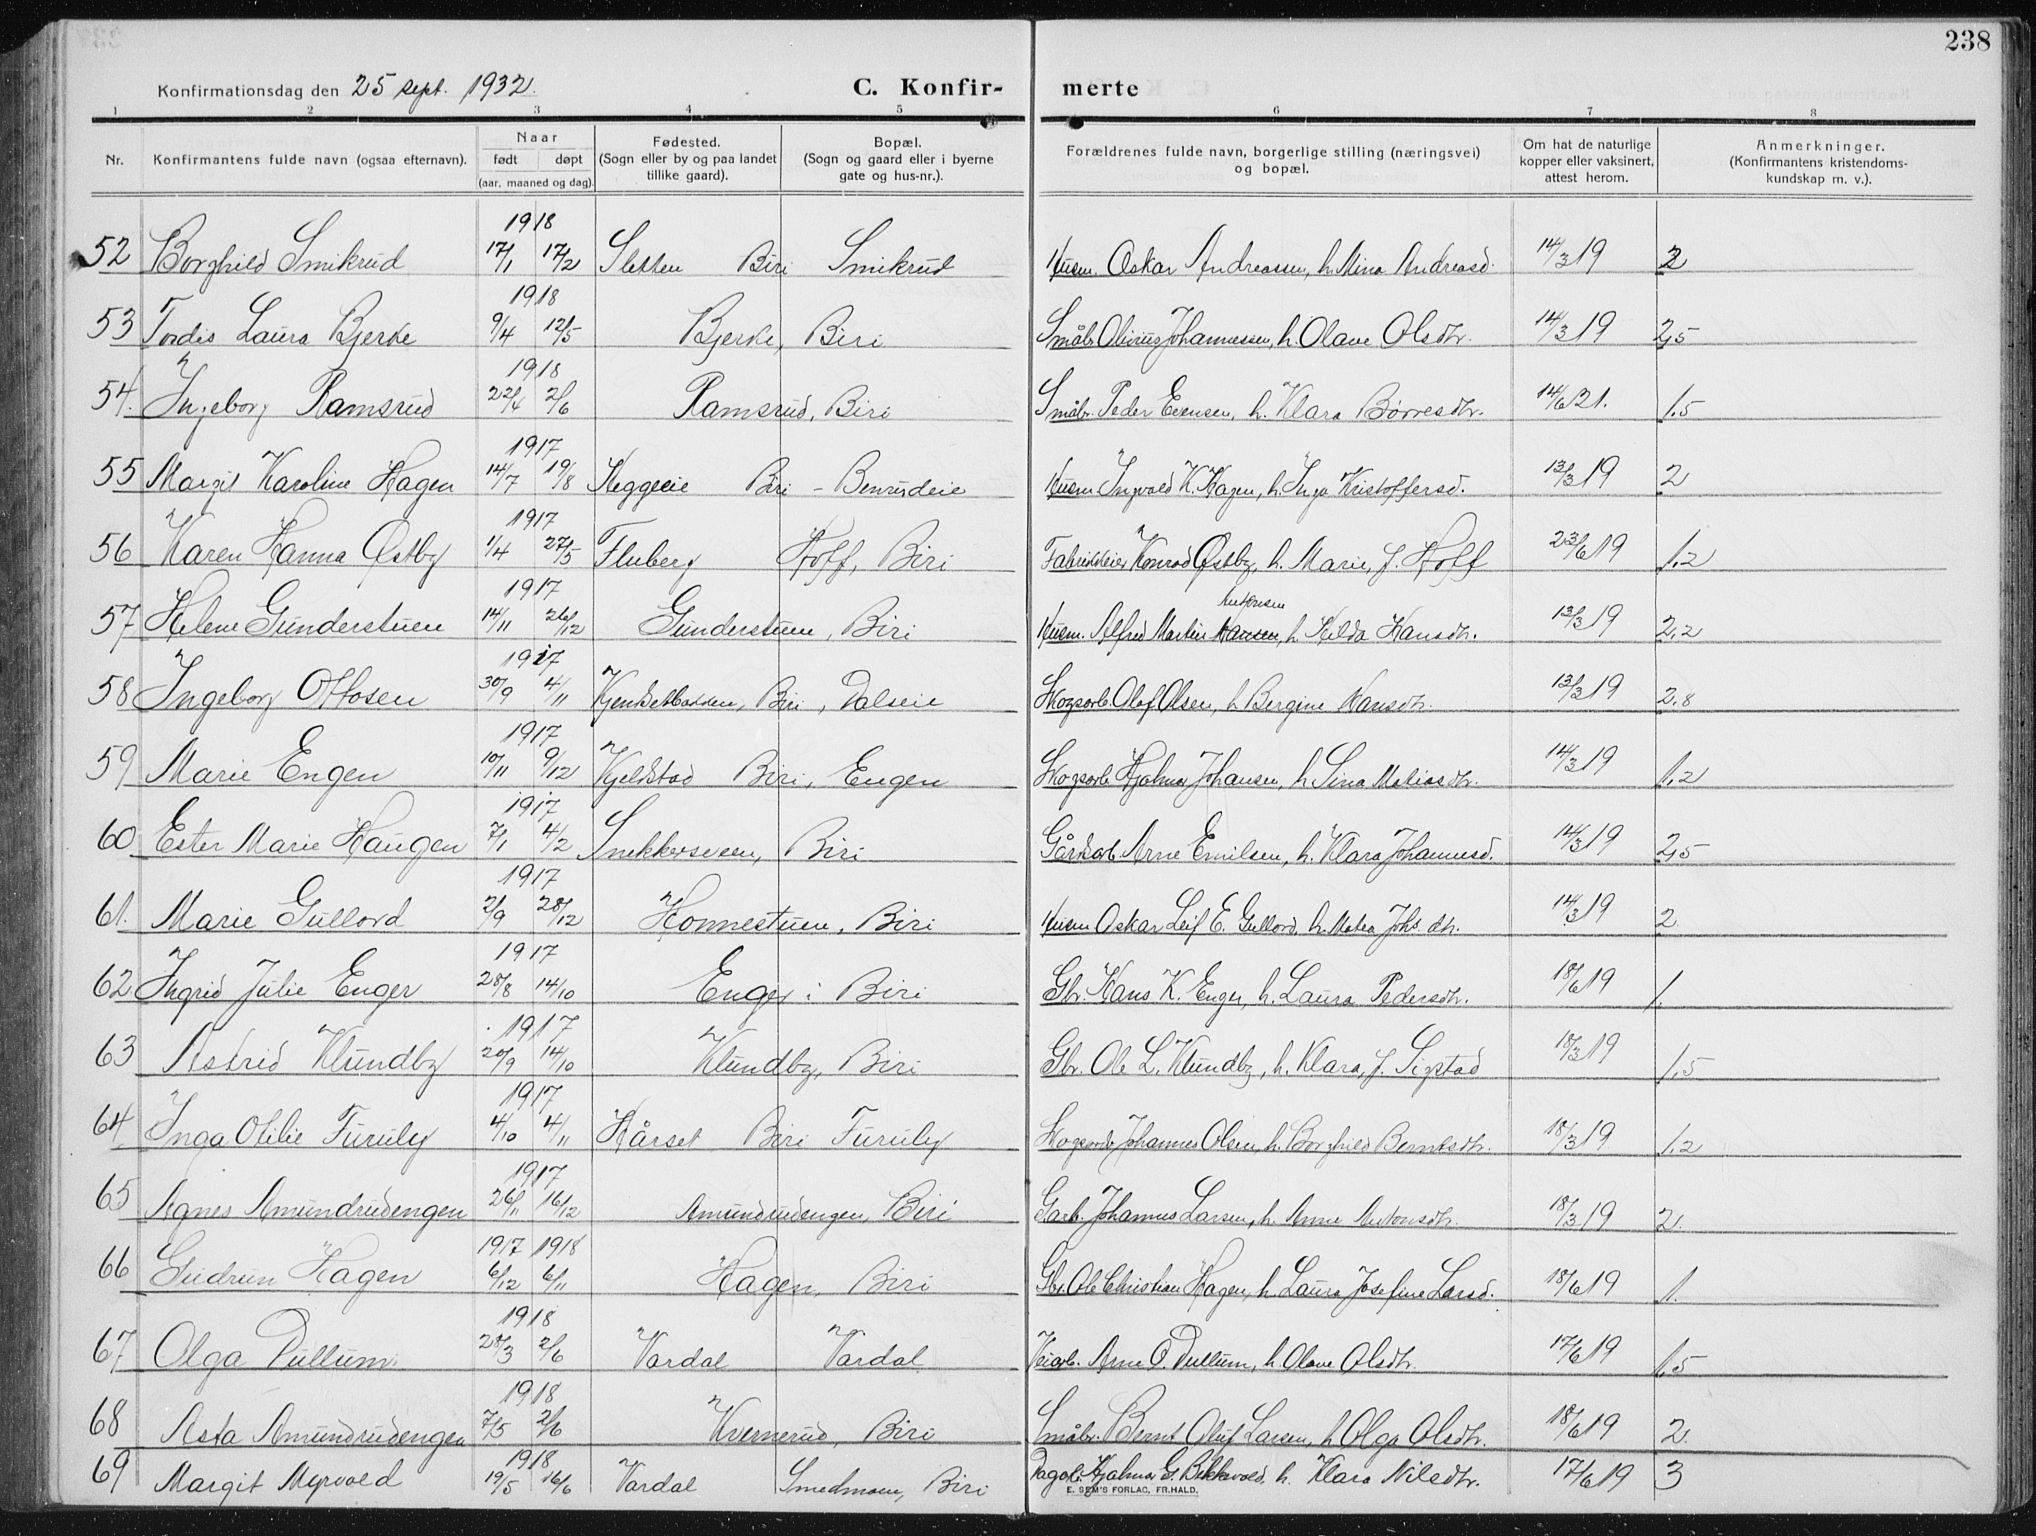 238
Konfirmationsdag den 25 sept. 1932.
C. Konfir-merte
1 2 3 4 5 6 7 8
Nr. Konfirmantens fulde navn (ogsaa efternavn). Naar født døpt (aar, maaned og dag). Fødested. (Sogn eller by og paa landet tillike gaard). Bopæl. (Sogn og gaard eller i byerne gate og hus-nr.). Forældrenes fulde navn, borgerlige stilling (næringsvei) og bopæl. Om hat de naturlige kopper eller vaksinert, attest herom. Anmerkninger. (Konfirmantens kristendoms-kundskap m. v.).
1918
52 Borghild Smikrud 17/1 17/2 Sletten Biri Smikrud Husm. Oskar Andreassen, h. Mina Andreasd. 14/3 19 2
1918
53 Tordis Laura Bjerke 9/4 12/5 Bjerke, Biri Småbr. Olivius Johannessen, h. Olave Olsdtr. 14/3 19 2,5
1918
54. Ingeborg Ramsrud 22/4 2/6 Ramsrud, Biri Småbr. Peder Evensen, h. Klara Børresdtr. 14/6 21. 1,5
1917
55 Margit Karoline Hagen 14/7 19/8 Heggeeie Biri - Benrudeie Husm Ingvald K. Hagen, h. Inga Kristoffersd. 13/3 19 2
1917
56 Karen Hanna Østby 1/4 27/5 Fluberg Hoff, Biri Konrad Østby, h. Marie, f. Hoff 23/6 19 1,2
1917
57 Helene Gunderstuen 14/11 26/12 Gunderstuen, Biri Husm. Alfred Martin Hansen Antonsen, h. Hilda Hansdtr. 13/3 19 2,2
1917
58 Ingeborg Ottosen 30/9 4/11 Biri, Dalseie Skogsarb. Olaf Olsen, h. Bergine Hansdtr. 13/3 19 2,8
1917
59 Marie Engen 10/11 9/12 Kjelstad Biri, Engen Skogsarb. Hjalmar Johansen, h. Sina Matiasdtr. 14/3 19 1,2
1917
60 Ester Marie Haugen 7/1 4/2 Snekkersveen, Biri Gårdarb. Arne Emilsen, h. Klara Johannesd. 14/3 19 2,5
1917
61. Marie Gullord 2/9 28/12 Honnestuen, Biri Husm Oskar Leif E. Gullord, h. Matea Johs. dtr. 14/3 19 2
1917
62 Ingrid Julie Enger 28/8 14/10 Enger i Biri Gbr. Hans K. Enger, h. Laura Pedersdtr. 18/6 19 1.
1917
63 Astrid Klundby 20/9 14/10 Klundby, Biri Gbr. Ole L. Klundby, h. Klara, f. Sigstad 18/3 19 1,5
1917
64 Inga Otilie Furuly 4/10 4/11 Hårset Biri Furuly Skogsarb. Johannes Olsen, h. Borghild Berntsdtr. 18/3 19 1,2
1917
65 Agnes Amundrudengen 26/11 16/12 Amundrudengen, Biri Johannes Larsen, h. Anne Antonsdtr. 18/3 19 2.
1917 1918
66 Gudrun Hagen 6/12 6/11 Hagen, Biri Gbr. Ole Christian Hagen, h. Laura Josefine Larsd. 18/6 19 1.
1918
67 Olga Dullum 28/3 2/6 Vardal Vardal Veiarb. Arne O. Dullum, h. Olave Olsdtr. 17/6 19 1,5
1918
68 Asta Amundrudengen 7/5 2/6 Kvernerud, Biri Småbr. Bernt Oluf Larsen, h. Olga Olsdtr. 18/6 19 2.
1918
69 Margit Myrvold 19/5 16/6 Vardal Smedmoen, Biri Hjalmar G. h. Klara Nilsdtr. 17/6 19 3
E. SEM'S FORLAG, FR.HALD.